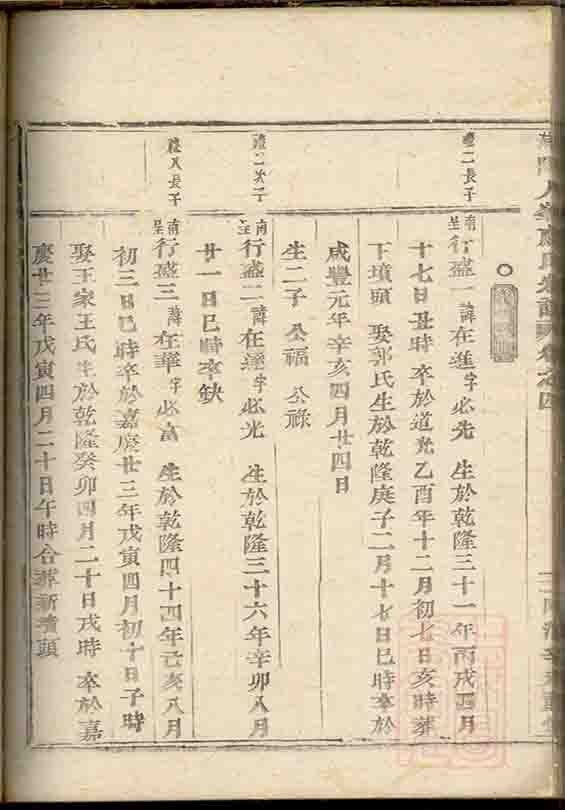 禮二長子
南呈行盛一諱在進字必先 生於乾隆三十一年丙戌四月
十七日丑時卒於道光乙酉年十二月初七日亥時葬
下墳頭 娶郭氏生於乾隆庚子二月十七日巳時卒於
咸豐元年辛亥四月廿四日
生二子 公福 公祿
禮二次子
南呈行盛二諱在進字必光 生於乾隆三十六年辛卯八月
廿一日巳時卒缺
禮八長子
南呈行盛三諱在華字必富 生於乾隆四十四年己亥八月
初三日巳時卒於嘉慶廿三年戊寅四月初十日子時
娶王家王氏生於乾隆癸卯四月二十日戌時 卒於嘉
慶廿三年戊寅四月二十日午時合葬新墳頭